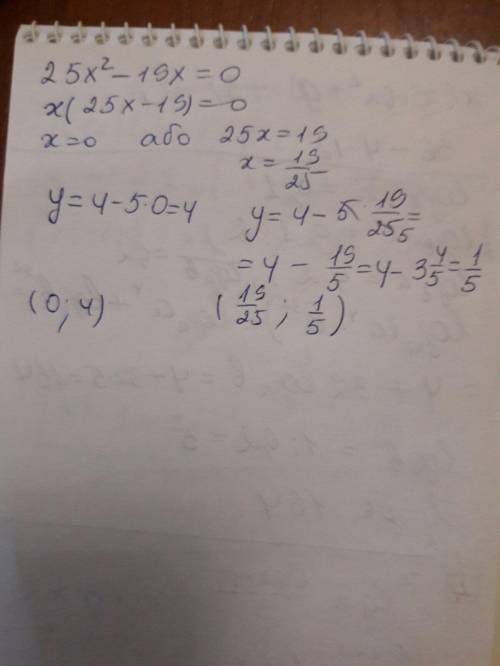 25x² - 19x = 0
x(25x - 19) = 0
x = 0 або 25x = 19
x = 19/25
y = 4 - 5·0 = 4
y = 4 - 5 · 19/25 5 =
= 4 - 19/5 = 4 - 3 4/5 = 1/5
(0; 4)
(19/25 ; 1/5)